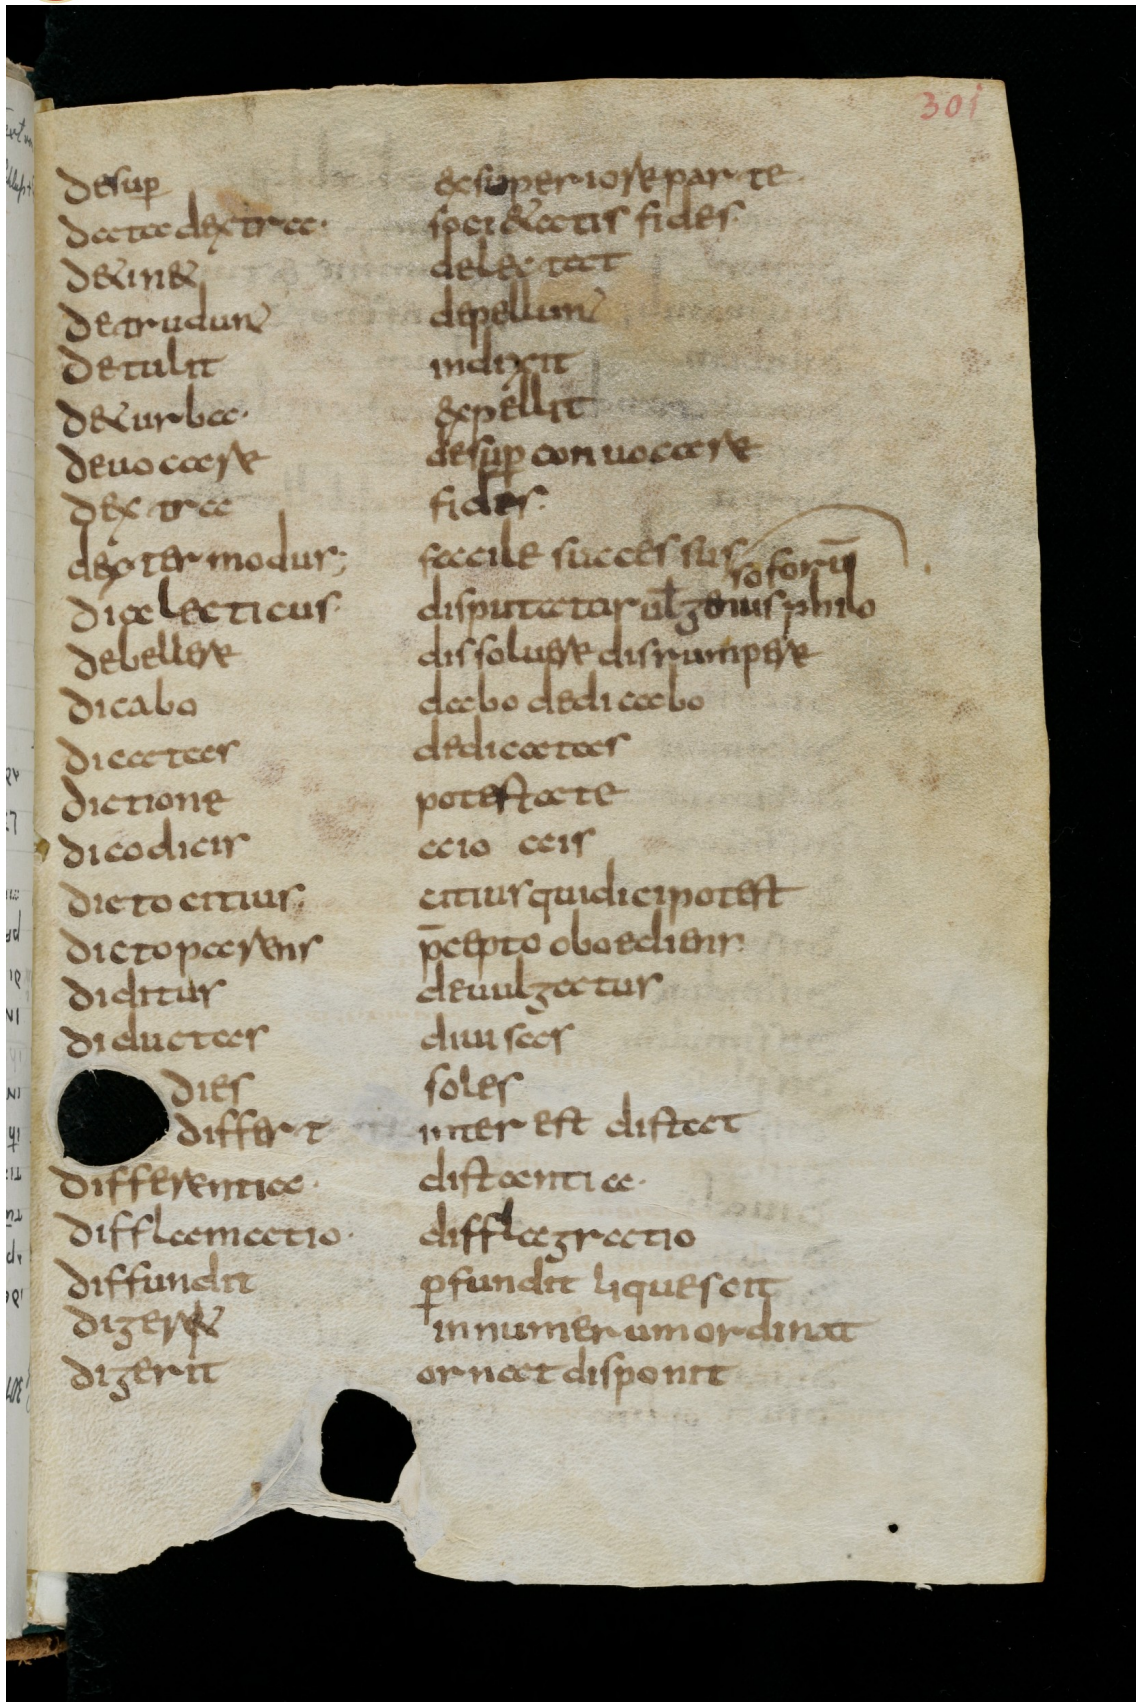 301
desup̲ exsuperiore parte.
data dextra. societatis fides.
detinet delectat
detrudunt depellunt
detulit indixit
deturba. expellit
deuocare desup̲ conuocare
dextra fides.
dexter modus; facile successus
soforū
dialecticus. disputator uł genus philo
debellere dissoluere disrumpere
dicabo dabo dedicabo
dicatas dedicatas
dictione potestate
dico dicis aio ais
dicto citius; citius qui dici potest
dicto parens p̄cepto oboediens.
diditur deuulgatur
diductas diuisas
dies soles
differt interest distat
differentia. distantia.
difflamatio. difflagratio
diffundit p̲fundit liquescit
digeret in numerum ordinat
digerit ornat disponit